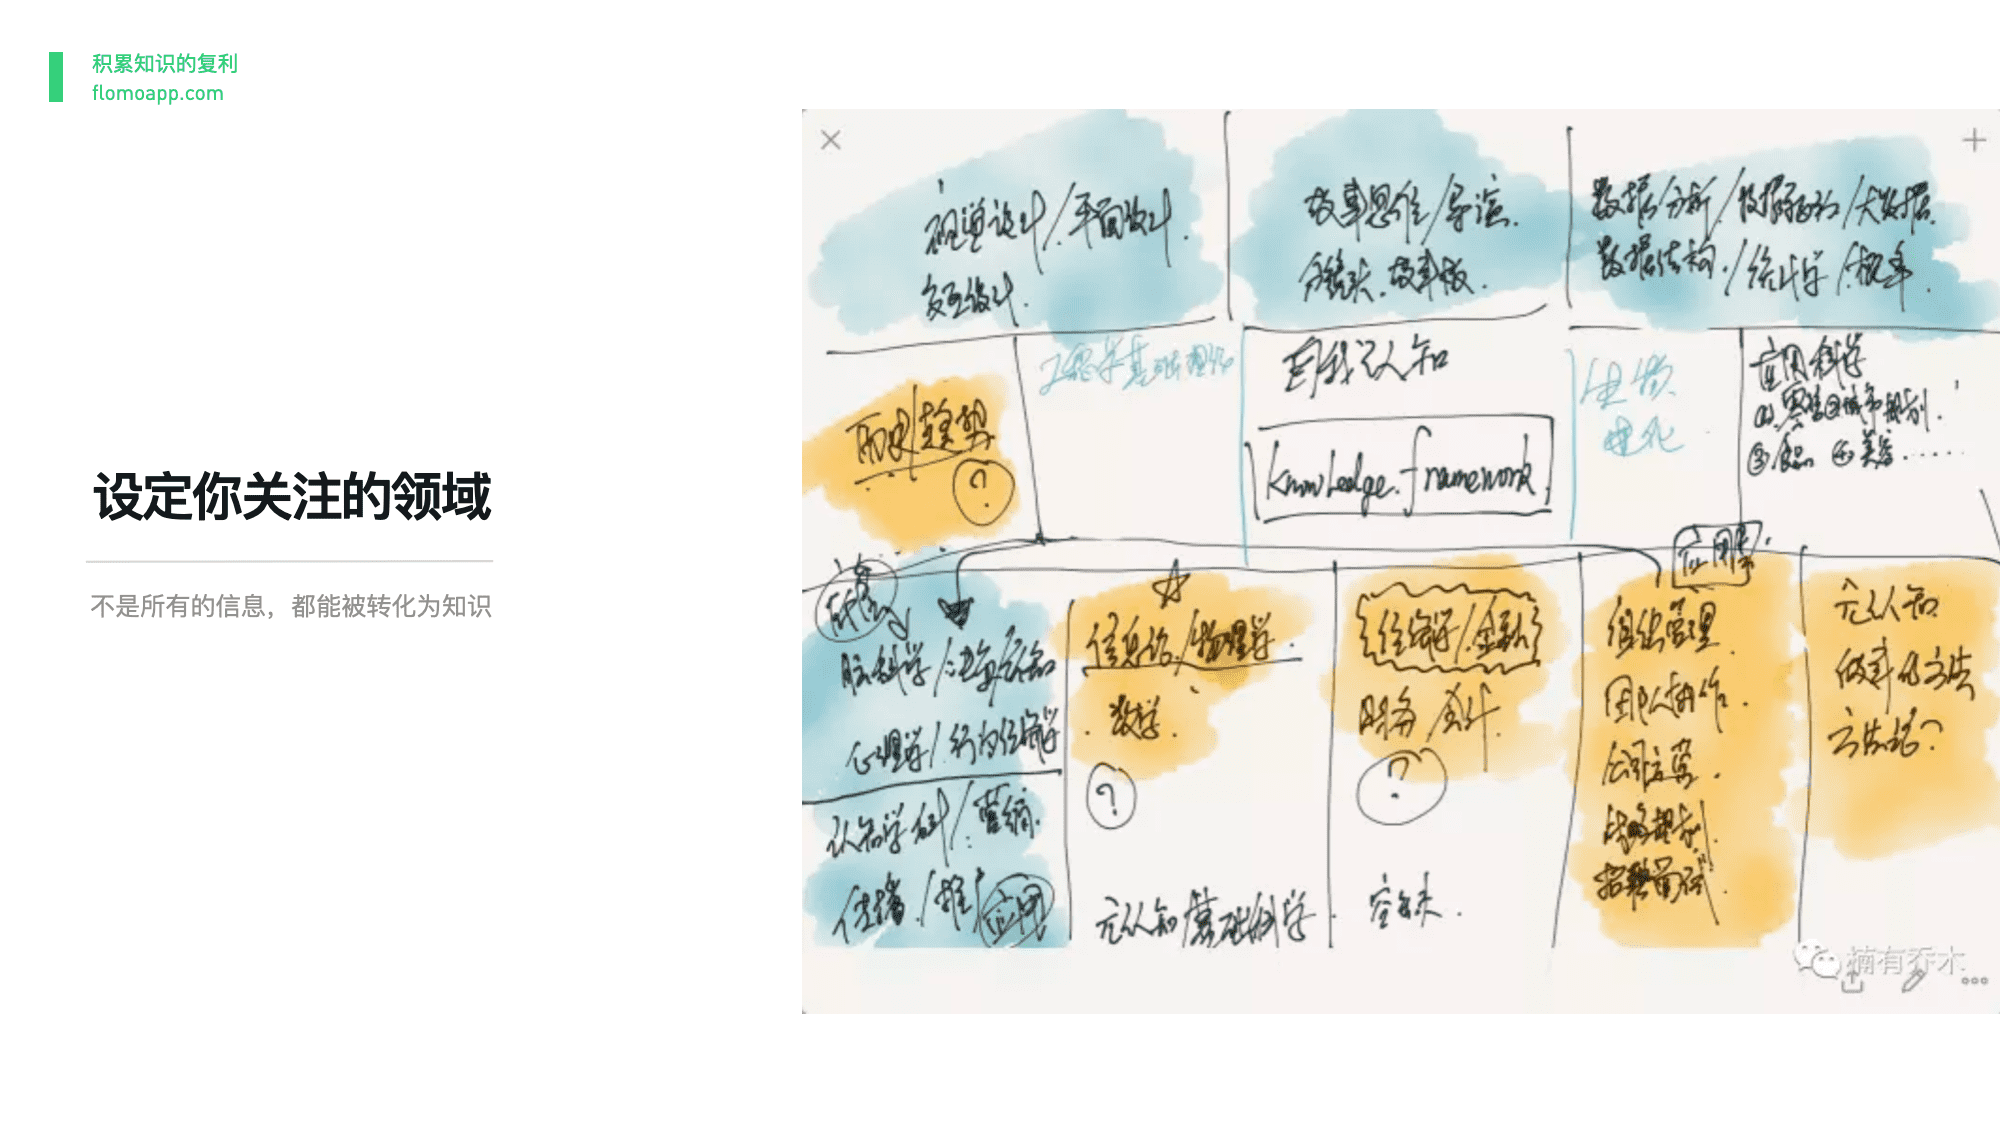 积累知识的复利
flomoapp.com
设定你关注的领域
不是所有的信息，都能被转化为知识
视觉设计/平面设计.
交互设计.
故事思维/导演.
分镜头.故事板.
数据分析/数据结构/大数据.
数据结构./统计学/概率.
历史趋势
?
工程学基础理论
自我认知
knowledge.framework.
生物
进化
应用科学
应用类
脑科学/认知
心理学/行为经济学
认知学科/营销.
传播/推广
应用
信息论./物理学.
数学.
?
元认知基础科学.
经济学/金融
财务/会计.
?
空白.
组织管理.
团队协作.
公司运营.
战略规划.
招聘面试.
元认知
做事化方法
方法论?
楠有乔木